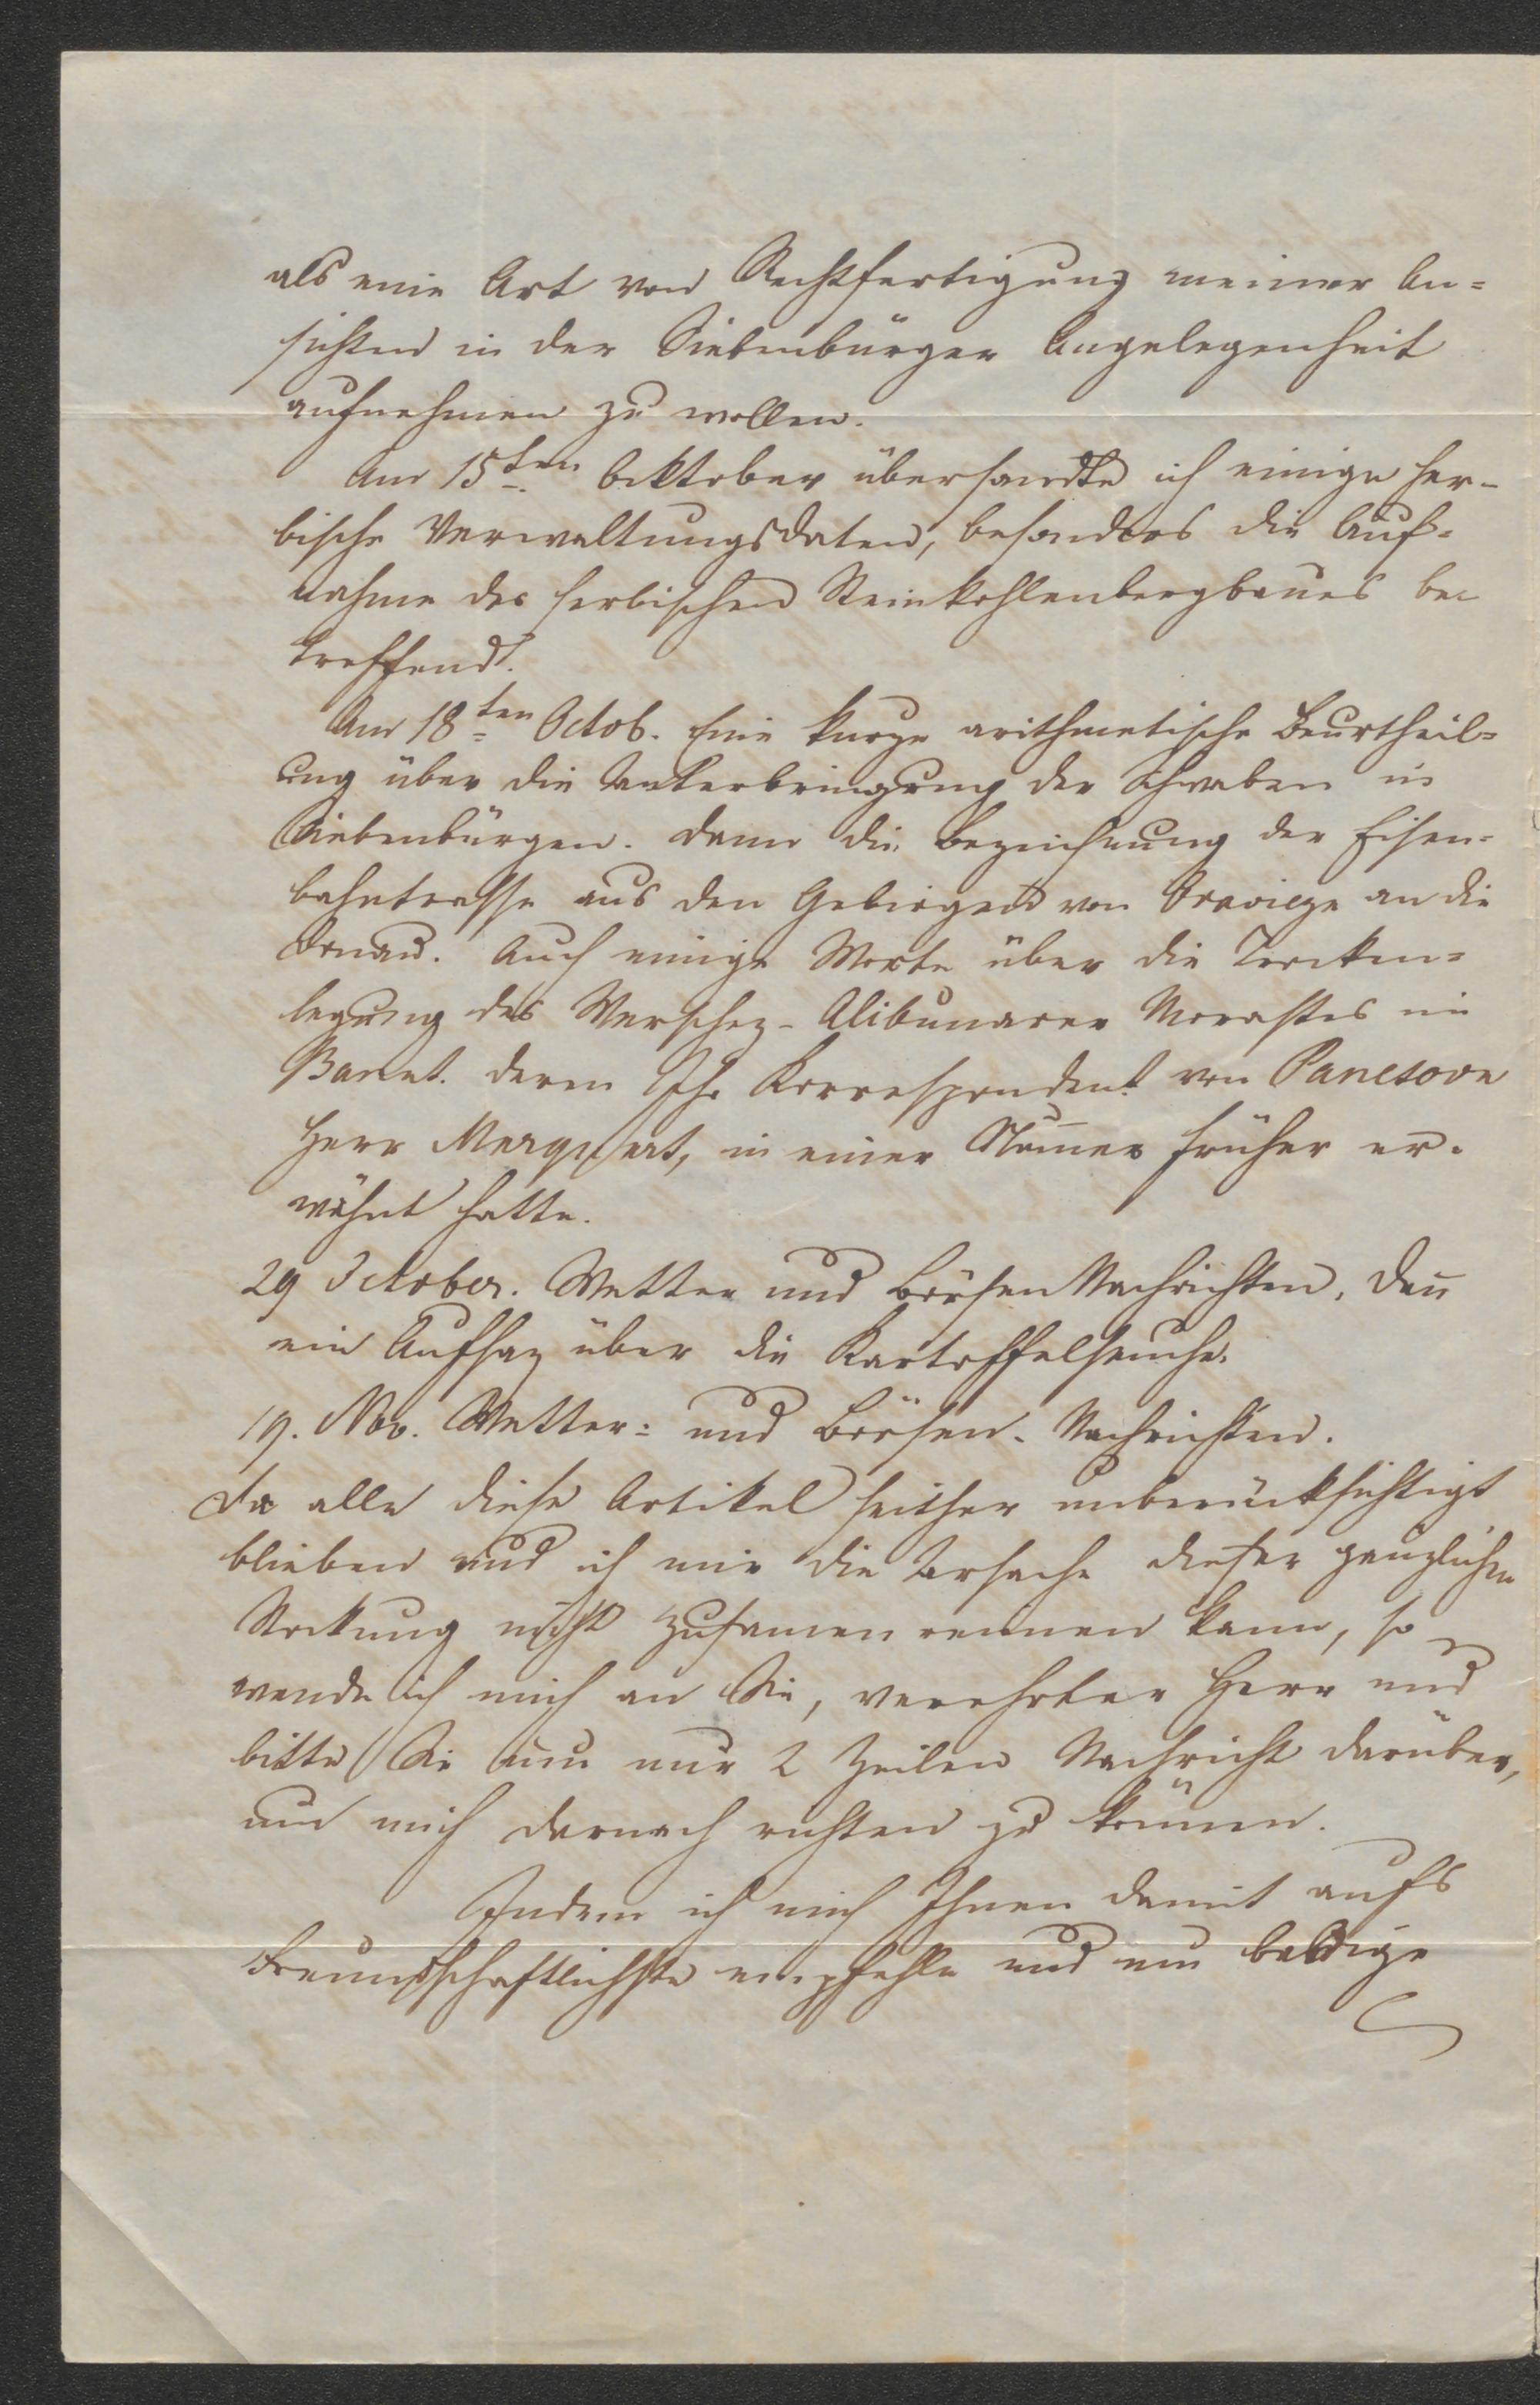 als eine Art von Rechtfertigung meiner An=
sichten in der Siebenbürger Angelegenheit
aufnehmen zu wollen.
Am 15ten Oktober übersandte ich einige ser-
bische Verwaltungsdaten, besonders die Auf-
nahme des serbischen Steinkohlenbergbaues be-
treffend.
Am 18ten Octob. Eine kurze arithmetische Beurtheil=
ung über die Unterbringung der Schwaben in
Siebenbürgen. Dann die Bezeichnung der Eisen=
bahntrasse aus den Gebirgen von Oravicza an die
Donau. Auch einige Worte über die Trocken=
legung des Werschez-Alibunarer Morastes im
Banat. deren Ihr Korrespondent von Pancsova
Herr in einer Numer früher er-
wähnt hatte.
29 October. Wetter und Börsen Nachrichten, dan̄
ein Aufsaz über die Kartoffelseuche.
19. Nov. Wetter= und Börsen-Nachrichten.
Da alle diese Artikel seither unberücksichtigt
blieben und ich mir die Ursache dieser gänzlichen
Stockung nicht zusamen reimen kann, so
wende ich mich an Sie, verehrter Herr und
bitte Sie nur 2 Zeilen Nachricht darüber,
um mich darnach richten zu können.
Indem ich mich Ihnen damit aufs
Freundschaftlichste empfehle und um baldige